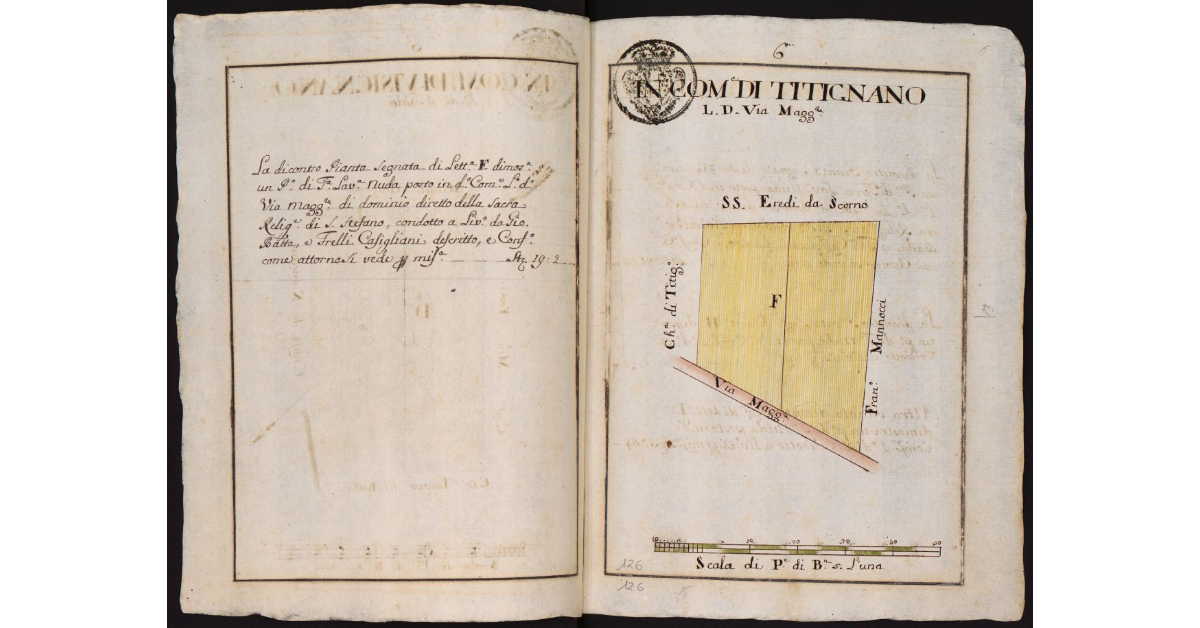 La dicontro Pianta segnata di Lettª. F dimosª.
un Pº. di Tª. Lavª. nuda posto in dº. Comº. L. dº.
Via Maggª. di dominio diretto della Sacra
Religª. di S. Stefano, condotto a Livº. da Gio.
Batta, e Frelli Casigliani descritto, e Confº.
come attorno si vede misª. Stª. 19: 2
6
IN COMᵉ DI TITIGNANO
L. D. Via Maggʳᵉ.
SS. Eredi da Scorno
Chª. di Titigº.
F
Franº. Mannocci
Via Maggʳᵉ.
10 0 10 20 30 40 50
Scala di Pᵉ. di Bª. 5. l'una
126
126